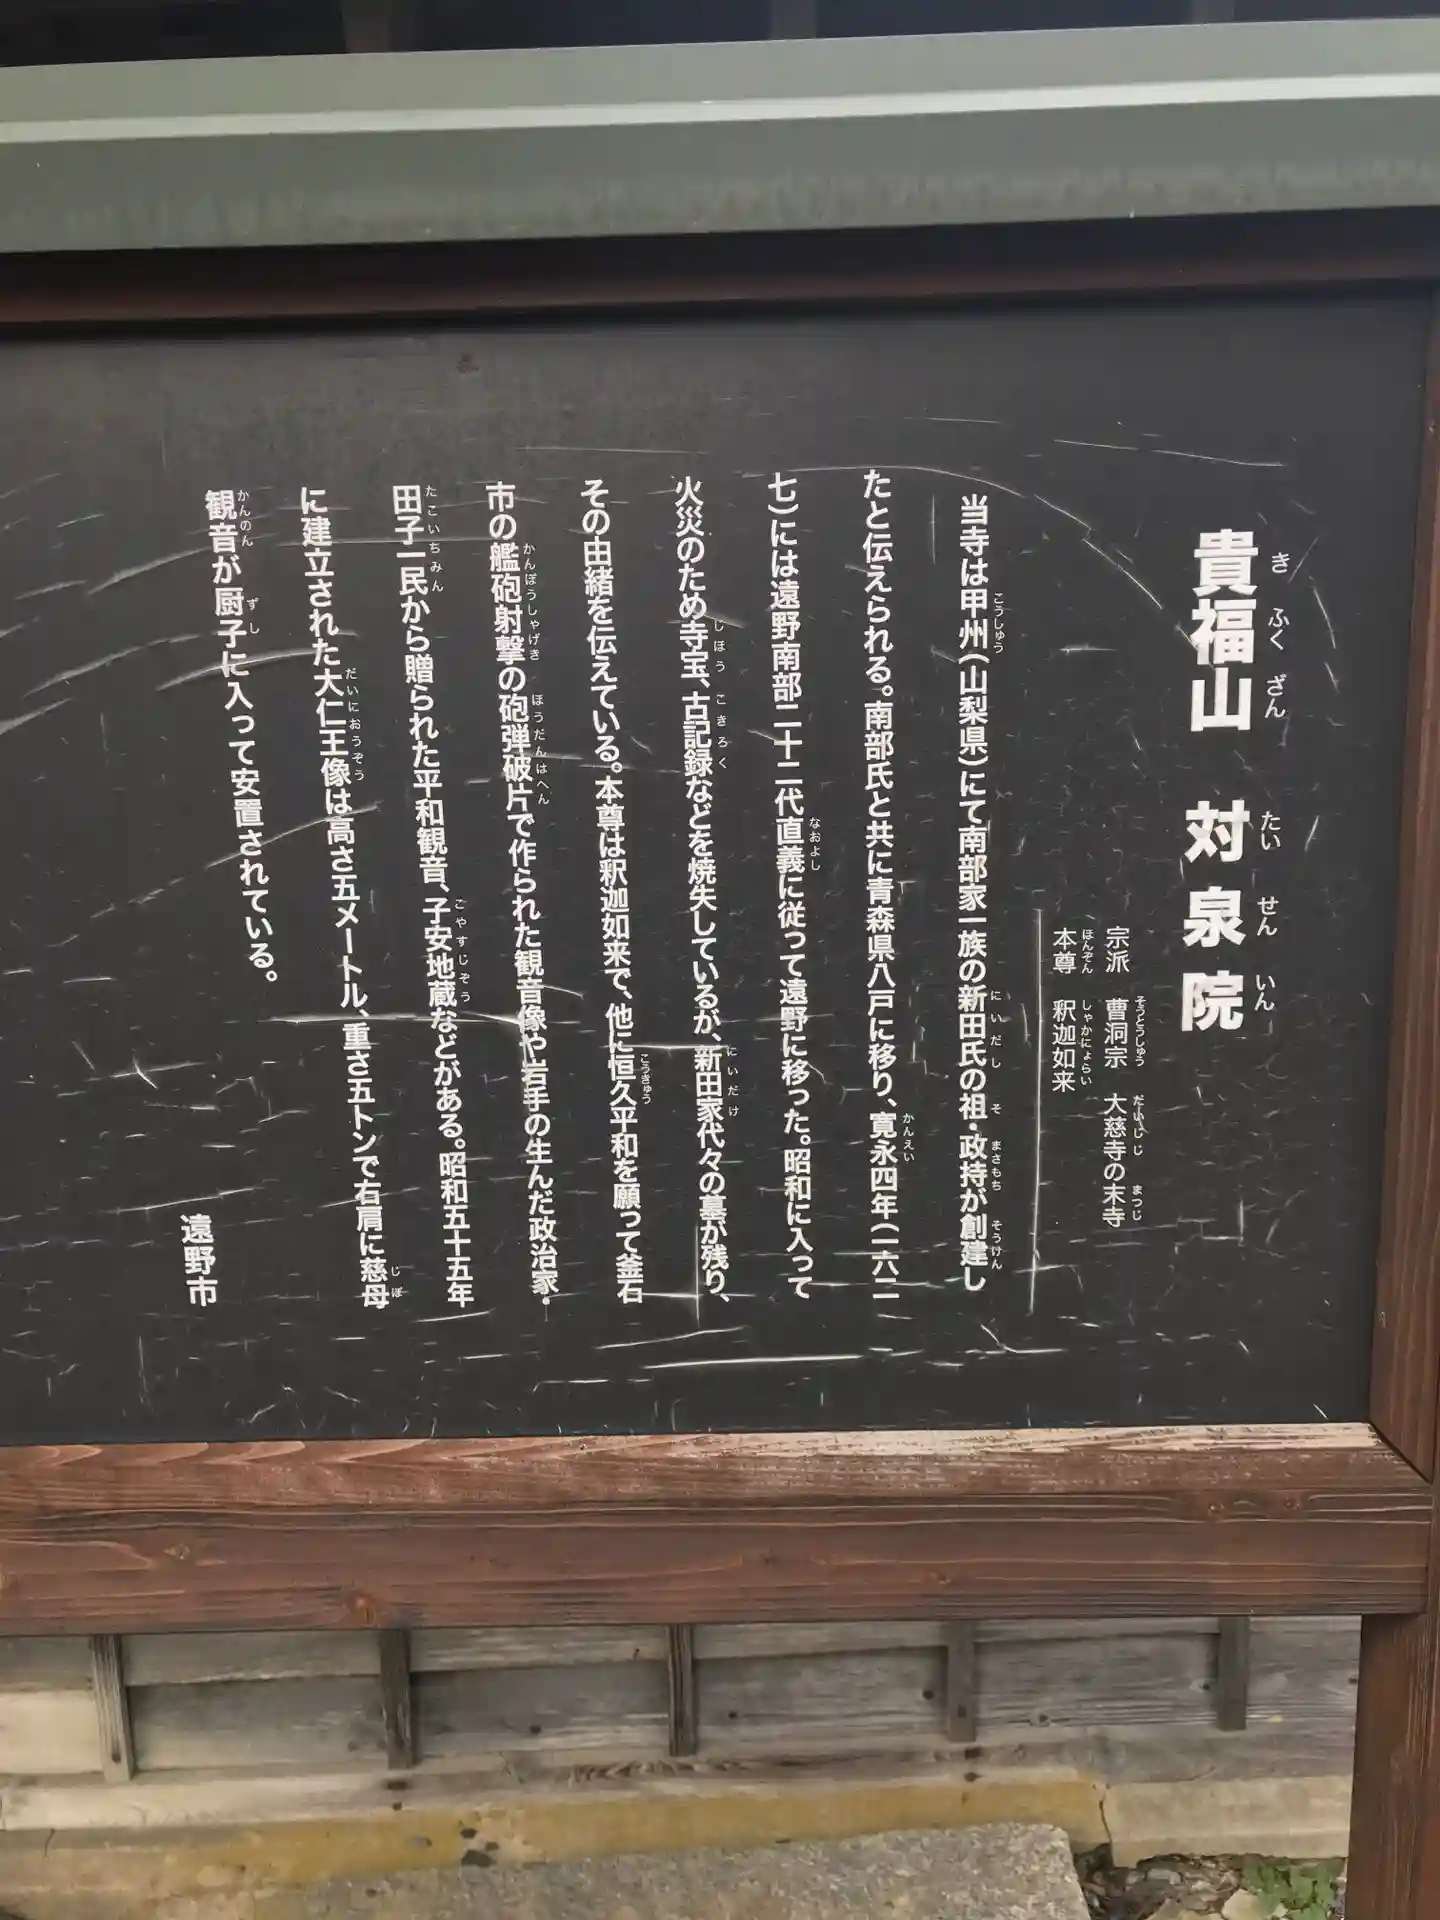 貴福山　対泉院
宗派　曹洞宗　大慈寺の末寺
本尊　釈迦如来
当寺は甲州（山梨県）にて南部家一族の新田氏の祖・政持が創建し
たと伝えられる。南部氏と共に青森県八戸に移り、寛永四年（一六二
七）には遠野南部二十二代直義に従って遠野に移った。昭和に入って
火災のため寺宝、古記録などを焼失しているが、新田家代々の墓が残り、
その由緒を伝えている。本尊は釈迦如来で、他に恒久平和を願って釜石
市の艦砲射撃の砲弾破片で作られた観音像や岩手の生んだ政治家・
田子一民から贈られた平和観音、子安地蔵などがある。昭和五十五年
に建立された大仁王像は高さ五メートル、重さ五トンで右肩に慈母
観音が厨子に入って安置されている。
遠野市